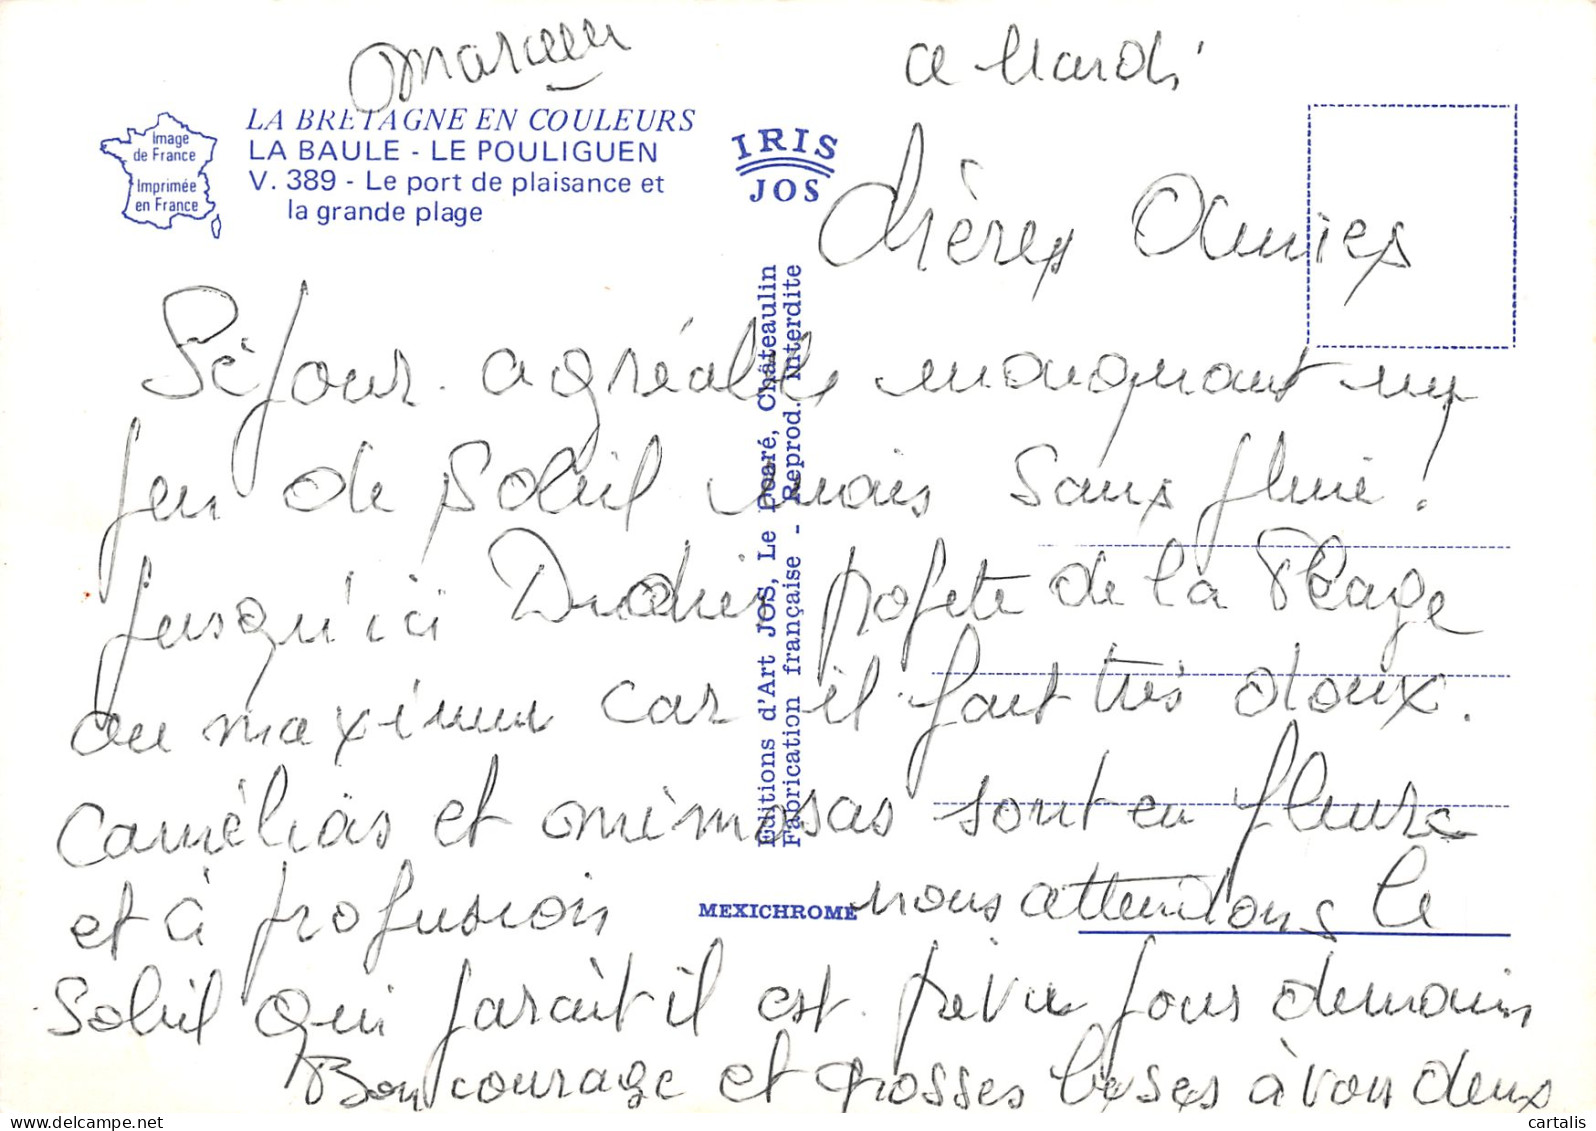 ce Mardi
LA BRETAGNE EN COULEURS
LA BAULE - LE POULIGUEN
V. 389 - Le port de plaisance et
la grande plage
Image
de France
Imprimée
en France
IRIS
JOS
Chères Amies
Séjour agréable manquant un
peu de soleil mais sans pluie !
Jusqu'ici Didier profite de la Plage
au maximum car il fait très doux.
Camélias et mimosas sont en fleurs
et à profusion nous attendons le
Soleil qui paraît il est prévu pour demain
Bon courage et grosses bises à vous deux
Editions d'Art JOS, Le Doaré, Châteaulin
Fabrication française - Reprod. interdite
MEXICHROME
cartalis